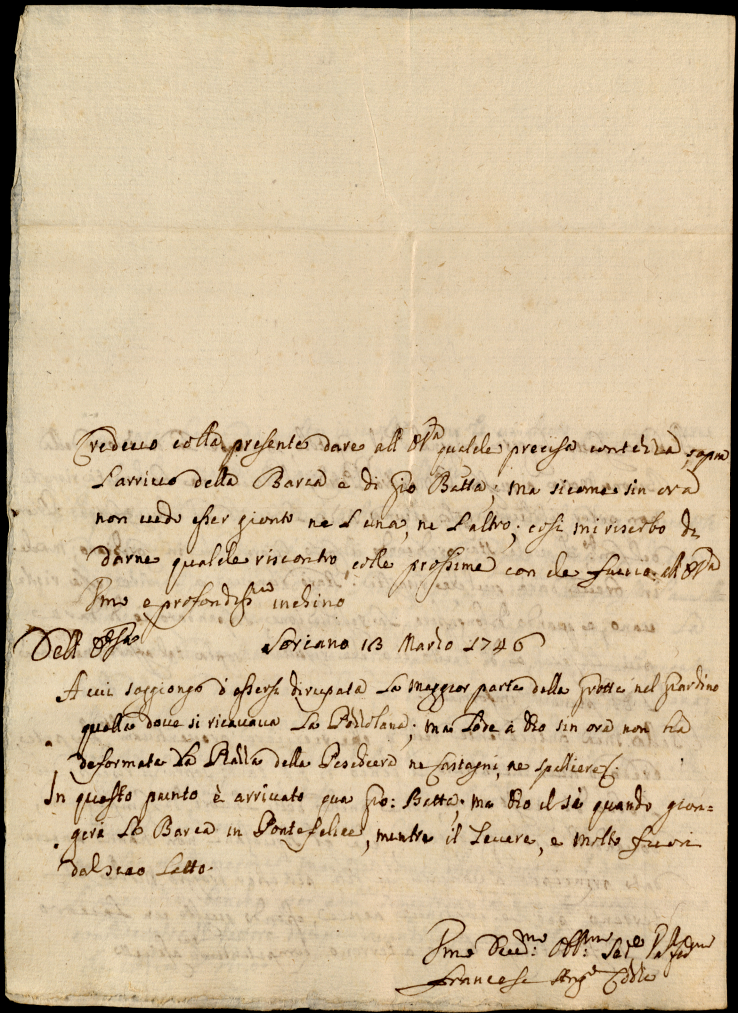 Credeuo colla presente dare all' qualche precisa contezza sopra
L'arriuo della Barca e di Gio Batta; ma sicome sin ora
non uedo esser gionto ne L'una, ne L'altro; così mi riserbo di
darne qualche riscontro colle prossime con che facio all'
e profondiss.mo inchino
Dell' Soriano 13 Marzo 1746
A cui soggiongo d'essersi dirupata La maggior parte della Grotta nel Giardino
quella dove si ricauaua La Pozzolana; ma Lode a Dio sin ora non ha
deformata La Piazza della Peschiera ne Castagni, ne spalliere
In questo punto è arriuato qua Gio: Batta; ma Dio il sà quando gion=
gerà La Barca in Pontefelice, mentre il Teuere, e molto fuori
dal suo Letto.
Francesc